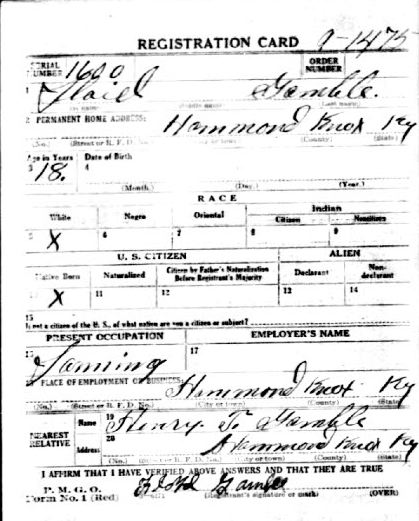 REGISTRATION CARD 9-1475
SERIAL NUMBER 1600 ORDER NUMBER
1 Floid Gamble
(First name) (Middle name) (Last name)
2 PERMANENT HOME ADDRESS: Hammond Knox Ky
(No.) (Street or R. F. D. No.) (City or town) (County) (State)
Age in Years Date of Birth
3 18 4
(Month.) (Day.) (Year.)
RACE
White Negro Oriental Indian
Citizen Noncitizen
5 X 6 7 8 9
U. S. CITIZEN ALIEN
Native Born Naturalized Citizen by Father's Naturalization Before Registrant's Majority Declarant Non-declarant
X 11 12 13 14
15
If not a citizen of the U. S., of what nation are you a citizen or subject?
PRESENT OCCUPATION EMPLOYER'S NAME
Farming 17
PLACE OF EMPLOYMENT OR BUSINESS: Hammond Knox Ky
(No.) (Street or R. F. D. No.) (City or town) (County) (State)
NEAREST RELATIVE Name 19 Henry T. Gamble
Address 20 Hammond Knox Ky
(No.) (Street or R. F. D. No.) (City or town) (County) (State)
I AFFIRM THAT I HAVE VERIFIED ABOVE ANSWERS AND THAT THEY ARE TRUE
P. M. G. O.
Form No. 1 (Red) Floid Gamble
(Registrant's signature or mark) (OVER)